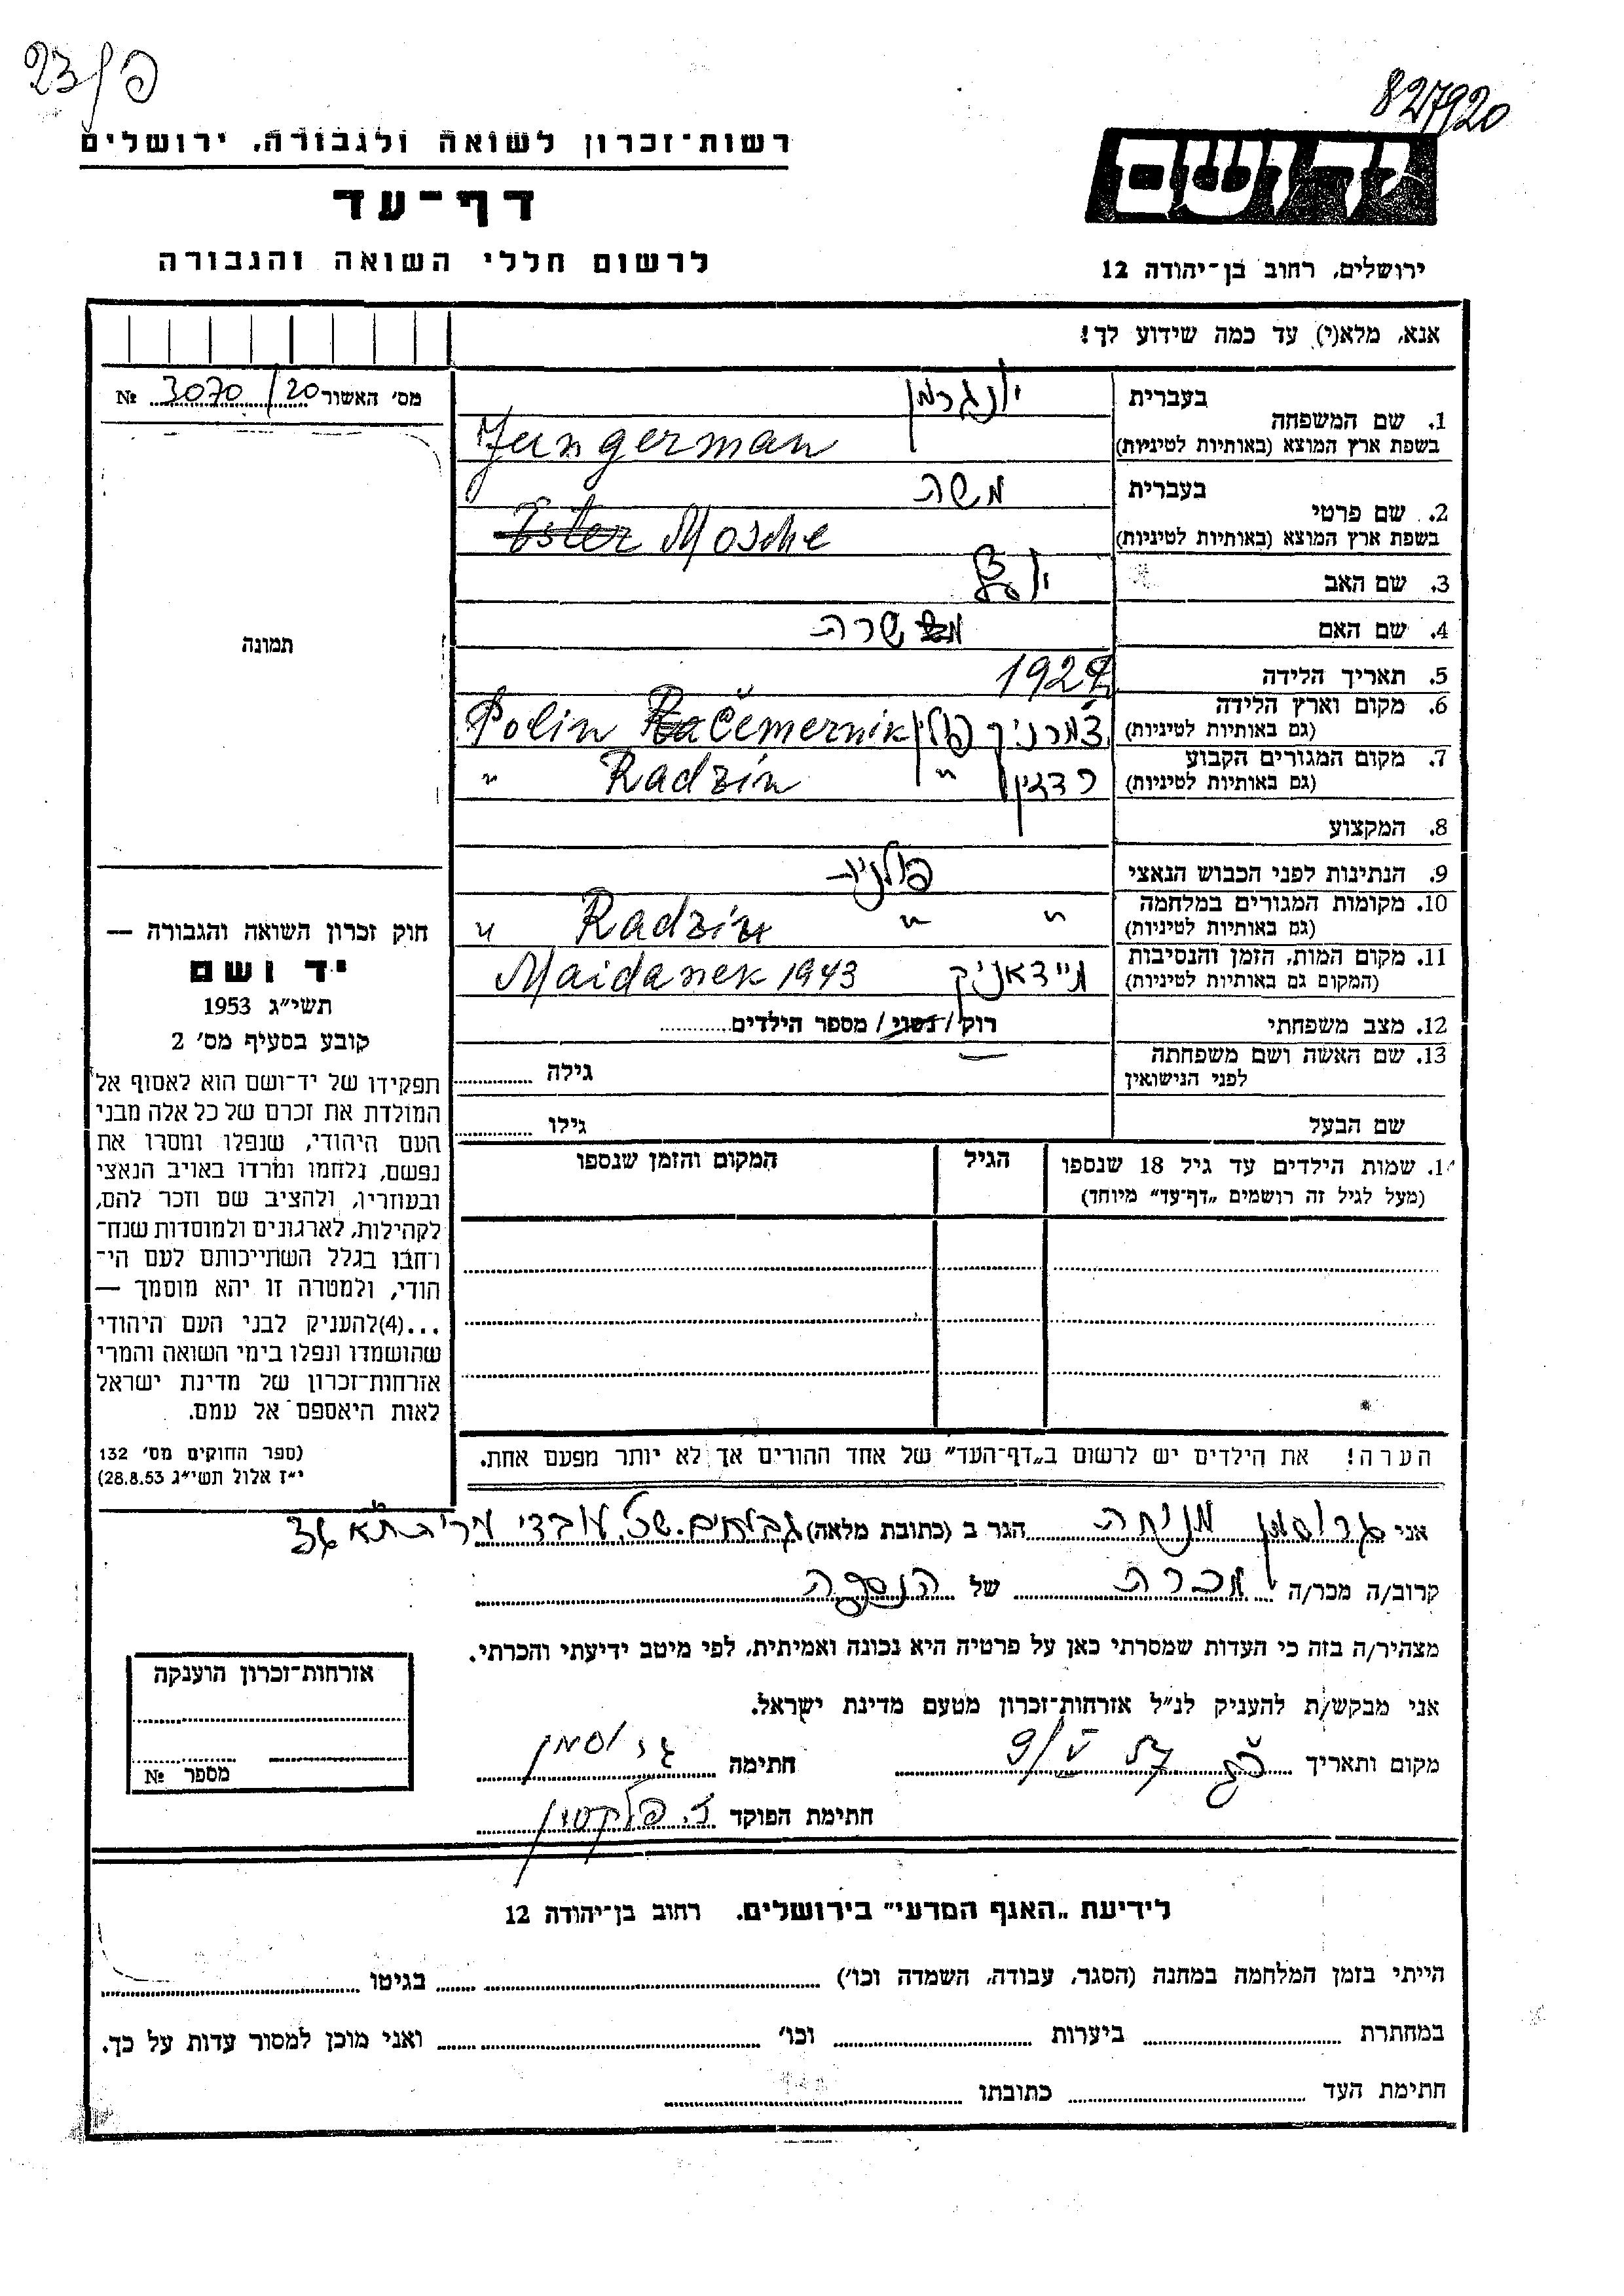 פ/23
827920
רשות-זכרון לשואה ולגבורה, ירושלים
דף-עד
לרשום חללי השואה והגבורה
ידושם
ירושלים, רחוב בן-יהודה 12
אנא, מלא(י) עד כמה שידוע לך!
מס' האשור 3070/20 №
תמונה
1. שם המשפחה בעברית יונגרמן
בשפת ארץ המוצא (באותיות לטיניות) Jungerman
2. שם פרטי בעברית משה
בשפת ארץ המוצא (באותיות לטיניות) Mosche
3. שם האב
4. שם האם שרה
5. תאריך הלידה
6. מקום וארץ הלידה
(גם באותיות לטיניות) צמרניק פולין Čemernik Polin
7. מקום המגורים הקבוע
(גם באותיות לטיניות) רדזין " Radzin "
8. המקצוע
9. הנתינות לפני הכבוש הנאצי פולנית
10. מקומות המגורים במלחמה
(גם באותיות לטיניות) " " Radzin "
11. מקום המות, הזמן והנסיבות
(המקום גם באותיות לטיניות) מיידאניק Maidanek 1943
12. מצב משפחתי רוק/נשוי/ מספר הילדים
13. שם האשה ושם משפחתה
לפני הנישואין גילה
שם הבעל גילו
14. שמות הילדים עד גיל 18 שנספו הגיל המקום והזמן שנספו
(מעל לגיל זה רושמים „דף-עד" מיוחד)
הערה! את הילדים יש לרשום ב„דף-העד" של אחד ההורים אך לא יותר מפעם אחת.
חוק זכרון השואה והגבורה —
יד ושם
תשי"ג 1953
קובע בסעיף מס' 2
תפקידו של יד-ושם הוא לאסוף אל
המולדת את זכרם של כל אלה מבני
העם היהודי, שנפלו ומסרו את
נפשם, נלחמו ומרדו באויב הנאצי
ובעוזריו, ולהציב שם וזכר להם,
לקהילות, לארגונים ולמוסדות שנח-
רבו בגלל השתייכותם לעם הי-
הודי, ולמטרה זו יהא מוסמך —
...(4) להעניק לבני העם היהודי
שהושמדו ונפלו בימי השואה והמרי
אזרחות-זכרון של מדינת ישראל
לאות היאספם אל עמם.
(ספר החוקים מס' 132
י"ז אלול תשי"ג 28.8.53)
אני גרוסמן מנוחה הגר ב (כתובת מלאה) גבעתיים. שכ. עובדי
קרוב/ה מכר/ה מכרה של הנספה
מצהיר/ה בזה כי העדות שמסרתי כאן על פרטיה היא נכונה ואמיתית, לפי מיטב ידיעתי והכרתי.
אני מבקש/ת להעניק לנ"ל אזרחות-זכרון מטעם מדינת ישראל.
מקום ותאריך 9/V 57 חתימה גרוסמן
חתימת הפוקד
אזרחות-זכרון הוענקה
מספר №
לידיעת „האגף המדעי" בירושלים. רחוב בן-יהודה 12
הייתי בזמן המלחמה במחנה (הסגר, עבודה, השמדה וכו') בגיטו
במחתרת ביערות וכו' ואני מוכן למסור עדות על כך.
חתימת העד כתובתו